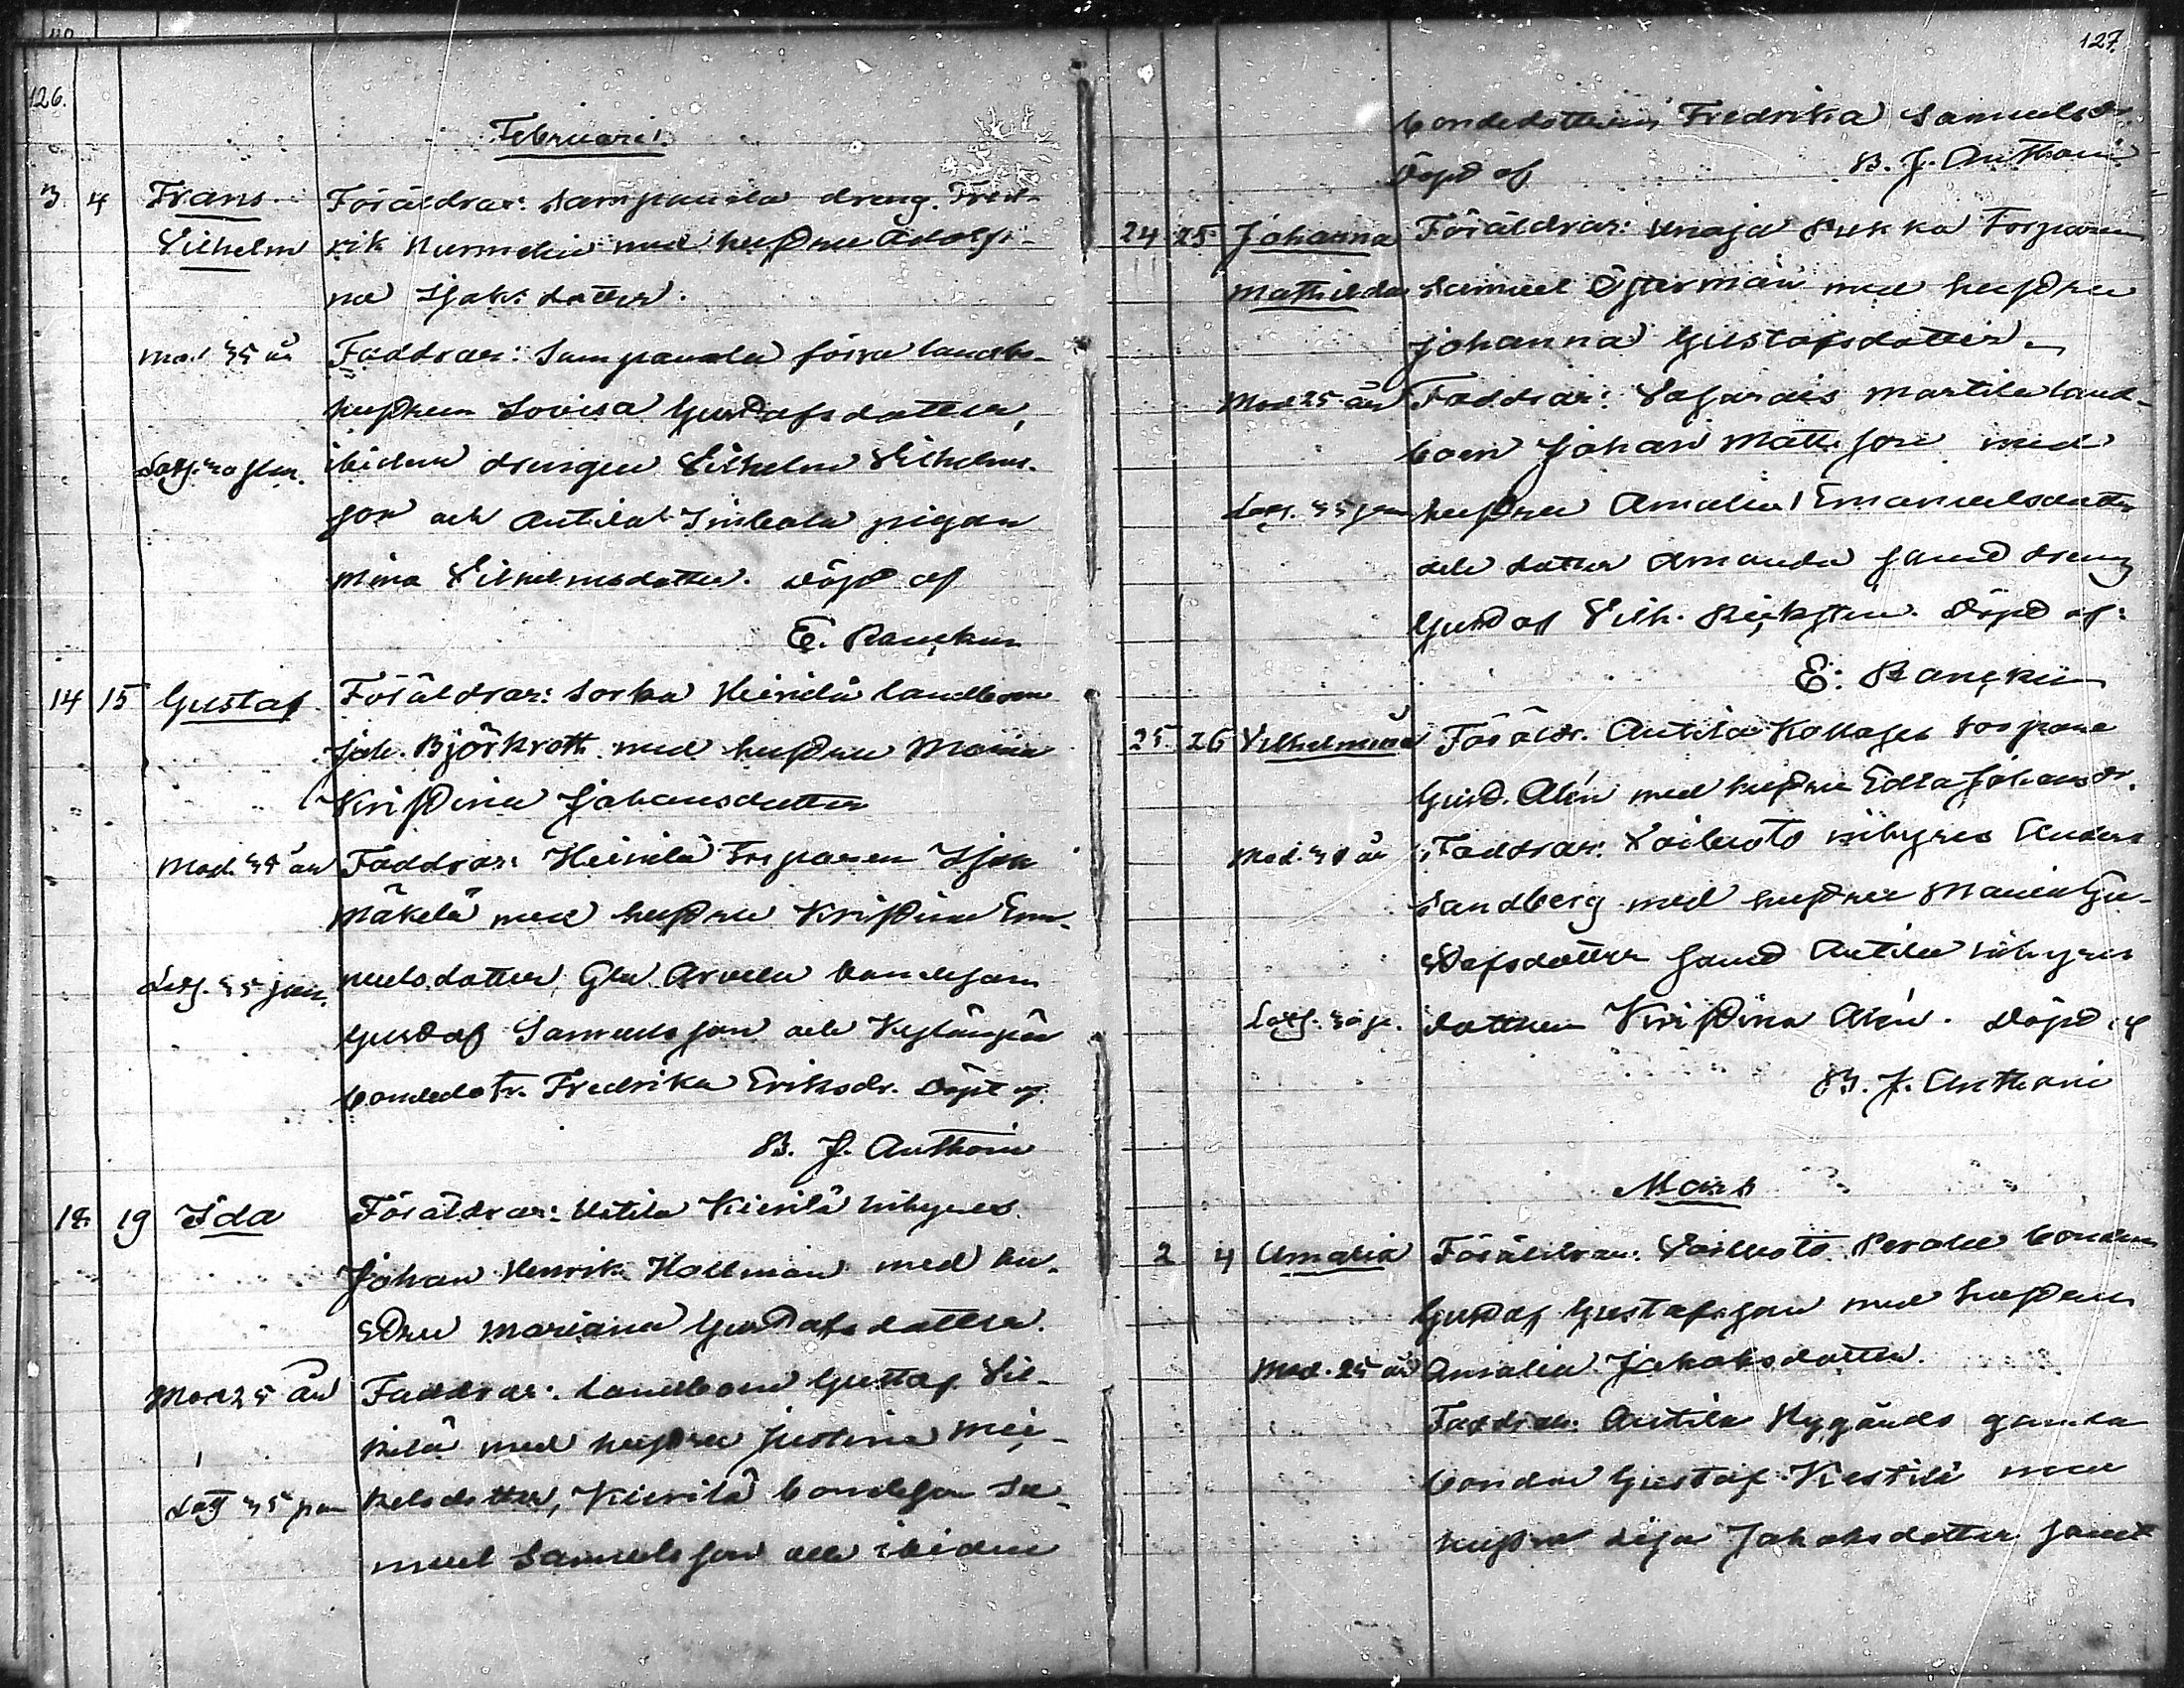 126.
Februari.
3 4 Frans Föräldrar: Sampanila dreng. Fred-
Vilhelm rik Nurmelin med hustru Adolfi-
na Isaks dotter.
Mod. 35 år Faddrar: Sampanila förra landb.
hustrun Lovisa Gustafsdotter,
ibidem drengen Vilhelm Vilhelms-
son och Antila pigan
Mina Vilhelmsdotter. Döpt af
E. Rancken
14 15 Gustaf Föräldrar: Sorka Heinilä landboen
Joh. Björkroth med hustru Maria
Kristina Johansdotter
Mod. år Faddrar: Heinilä Torparen Isak
Mäkelä med hustru Kristina Em-
nuelsdotter, Gla Arvela bondeson
Gustaf Samuelsson och
bondedotr. Fredrika Eriksdr. Döpt af
B. J. Anthoni
18 19 Ida Föräldrar: Uotila Kiivilä inhyses
Johan Henrik Hollman med hu-
stru Mariana Gustafsdotter.
Mod 25 år Faddrar: Landboen Gustaf
med hustru Justina Mic-
kelsdotter, Kiivilä bondeson Sa-
muel Samuelsson och ibidem
127.
bondedottern Fredrika Samuelsdr.
Döpt af B. J. Anthoni
24 25 Johanna Föräldrar: Unaja Pukka Torparen
Mathilda Samuel Österman med hustru
Johanna Gustafsdotter.
Mod 25 år Faddrar: Martila land-
boen Johan Matts son med
hustru Amalia Emanuelsdotter
och dotter Amanda samt dreng
Gustaf Vilh. Döpt af:
E. Rancken
25 26 Vilhelmina Föräldr. Antila Torpare
Gust. Alén med hustru Edla Johansdr.
Mod. år Faddrar: Voiluoto inhyses Anders
Sandberg med hustru Maria Gu-
stafsdotter samt Antila inhyses
dottren Kristina Alén. Döpt af
B. J. Anthoni
Mars
2 4 Amalia Föräldrar: Voiluoto Perala bonden
Gustaf Gustafsson med hustrun
Mod. 25 år Amalia Jakobsdotter.
Faddrar: Antila Nygårds gamla
bonden Gustaf Kestilä med
hustru Lisa Jakobsdotter samt